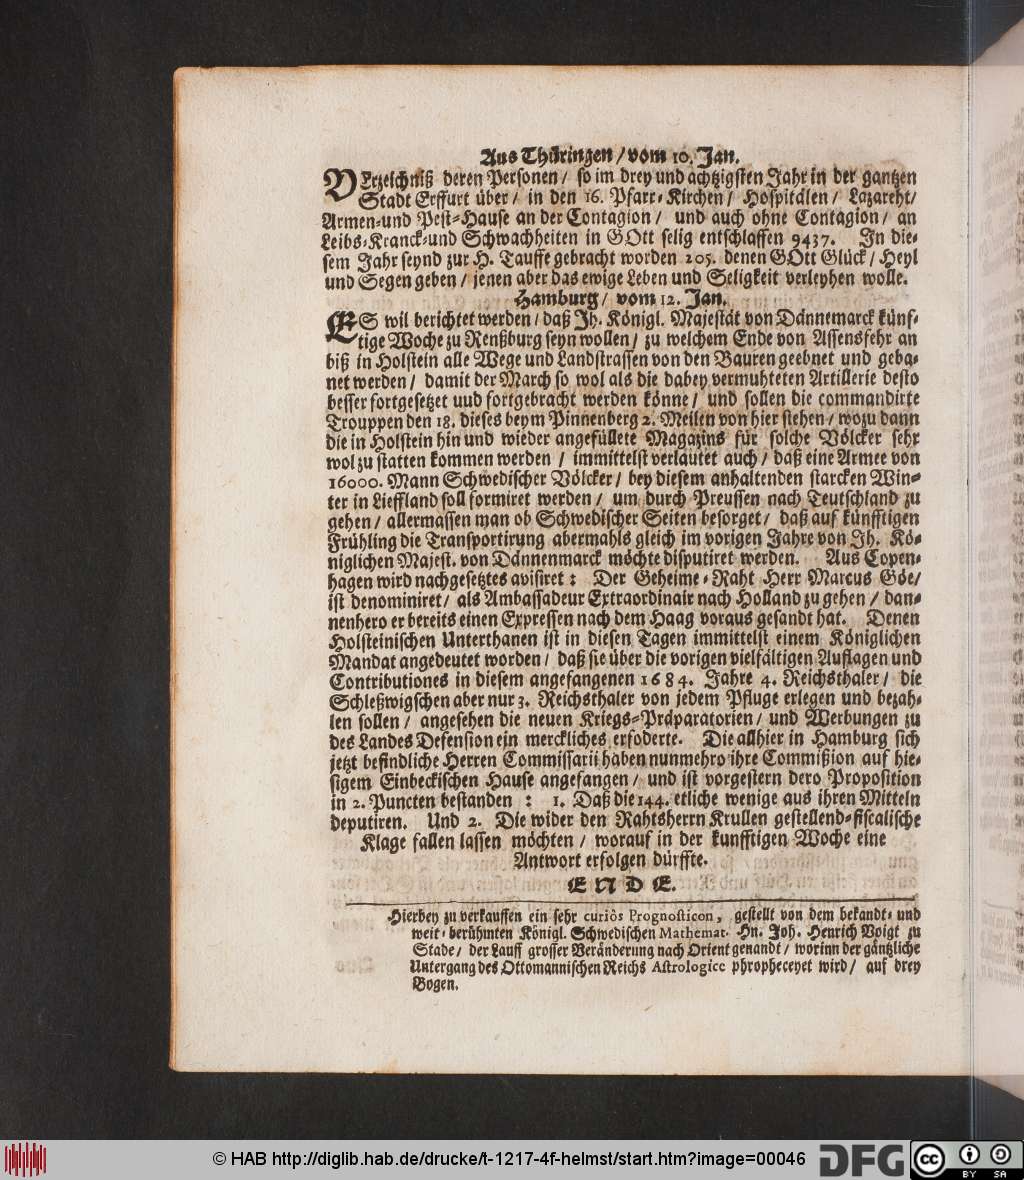 Aus Thüringen / vom 10. Jan.
VErzeichniß deren Personen / so im drey und achtzigsten Jahr in der gantzen
Stadt Erffurt über / in den 16. Pfarr-Kirchen / Hospitälen / Lazareht /
Armen-und Pest-Hause an der Contagion / und auch ohne Contagion / an
Leibs-Kranck-und Schwachheiten in GOtt selig entschlaffen 9437. In die-
sem Jahr seynd zur H. Tauffe gebracht worden 205. denen GOtt Glück / Heyl
und Segen geben / jenen aber das ewige Leben und Seligkeit verleyhen wolle.
Hamburg / vom 12. Jan.
ES wil berichtet werden / daß Jh. Königl. Majestät von Dännemarck künf-
tige Woche zu Renßburg seyn wollen / zu welchem Ende von Assensfehr an
biß in Holstein alle Wege und Landstrassen von den Bauren geebnet und geba-
net werden / damit der March so wol als die dabey vermuhteten Artillerie desto
besser fortgesetzet uud fortgebracht werden könne / und sollen die commandirte
Trouppen den 18. dieses beym Pinnenberg 2. Meilen von hier stehen / wozu dann
die in Holstein hin und wieder angefüllete Magazins für solche Völcker sehr
wol zu statten kommen werden / immittelst verlautet auch / daß eine Armee von
16000. Mann Schwedischer Völcker / bey diesem anhaltenden starcken Win-
ter in Lieffland soll formiret werden / um durch Preussen nach Teutschland zu
gehen / allermassen man ob Schwedischer Seiten besorget / daß auf künfftigen
Frühling die Transportirung abermahls gleich im vorigen Jahre von Jh. Kö-
niglichen Majest. von Dännenmarck möchte disputiret werden. Aus Copen-
hagen wird nachgesetztes avisiret : Der Geheime-Raht Herr Marcus Göe /
ist denominiret / als Ambassadeur Extraordinair nach Holland zu gehen / dan-
nenhero er bereits einen Expressen nach dem Haag voraus gesandt hat. Denen
Holsteinischen Unterthanen ist in diesen Tagen immittelst einem Königlichen
Mandat angedeutet worden / daß sie über die vorigen vielfältigen Auflagen und
Contributiones in diesem angefangenen 1684. Jahre 4. Reichsthaler / die
Schleßwigschen aber nur 3. Reichsthaler von jedem Pfluge erlegen und bezah-
len sollen / angesehen die neuen Kriegs-Präparatorien / und Werbungen zu
des Landes Defension ein merckliches erfoderte. Die allhier in Hamburg sich
jetzt befindliche Herren Commissarii haben nunmehro ihre Commißion auf hie-
sigem Einbeckischen Hause angefangen / und ist vorgestern dero Proposition
in 2. Puncten bestanden : 1. Daß die 144. etliche wenige aus ihren Mitteln
deputiren. Und 2. Die wider den Rahtsherrn Krullen gestellend-fiscalische
Klage fallen lassen möchten / worauf in der kunfftigen Woche eine
Antwort erfolgen dürffte.
ENDE.
Hierbey zu verkauffen ein sehr curiös Prognosticon, gestellt von dem bekandt- und
weit-berühmten Königl. Schwedischen Mathemat. Hn. Joh. Henrich Voigt zu
Stade / der Lauff grosser Veränderung nach Orient genandt / worinn der gäntzliche
Untergang des Ottomannischen Reichs Astrologicè phropheceyet wird / auf drey
Bogen.
© HAB http://diglib.hab.de/drucke/t-1217-4f-helmst/start.htm?image=00046
DFG
cc BY SA